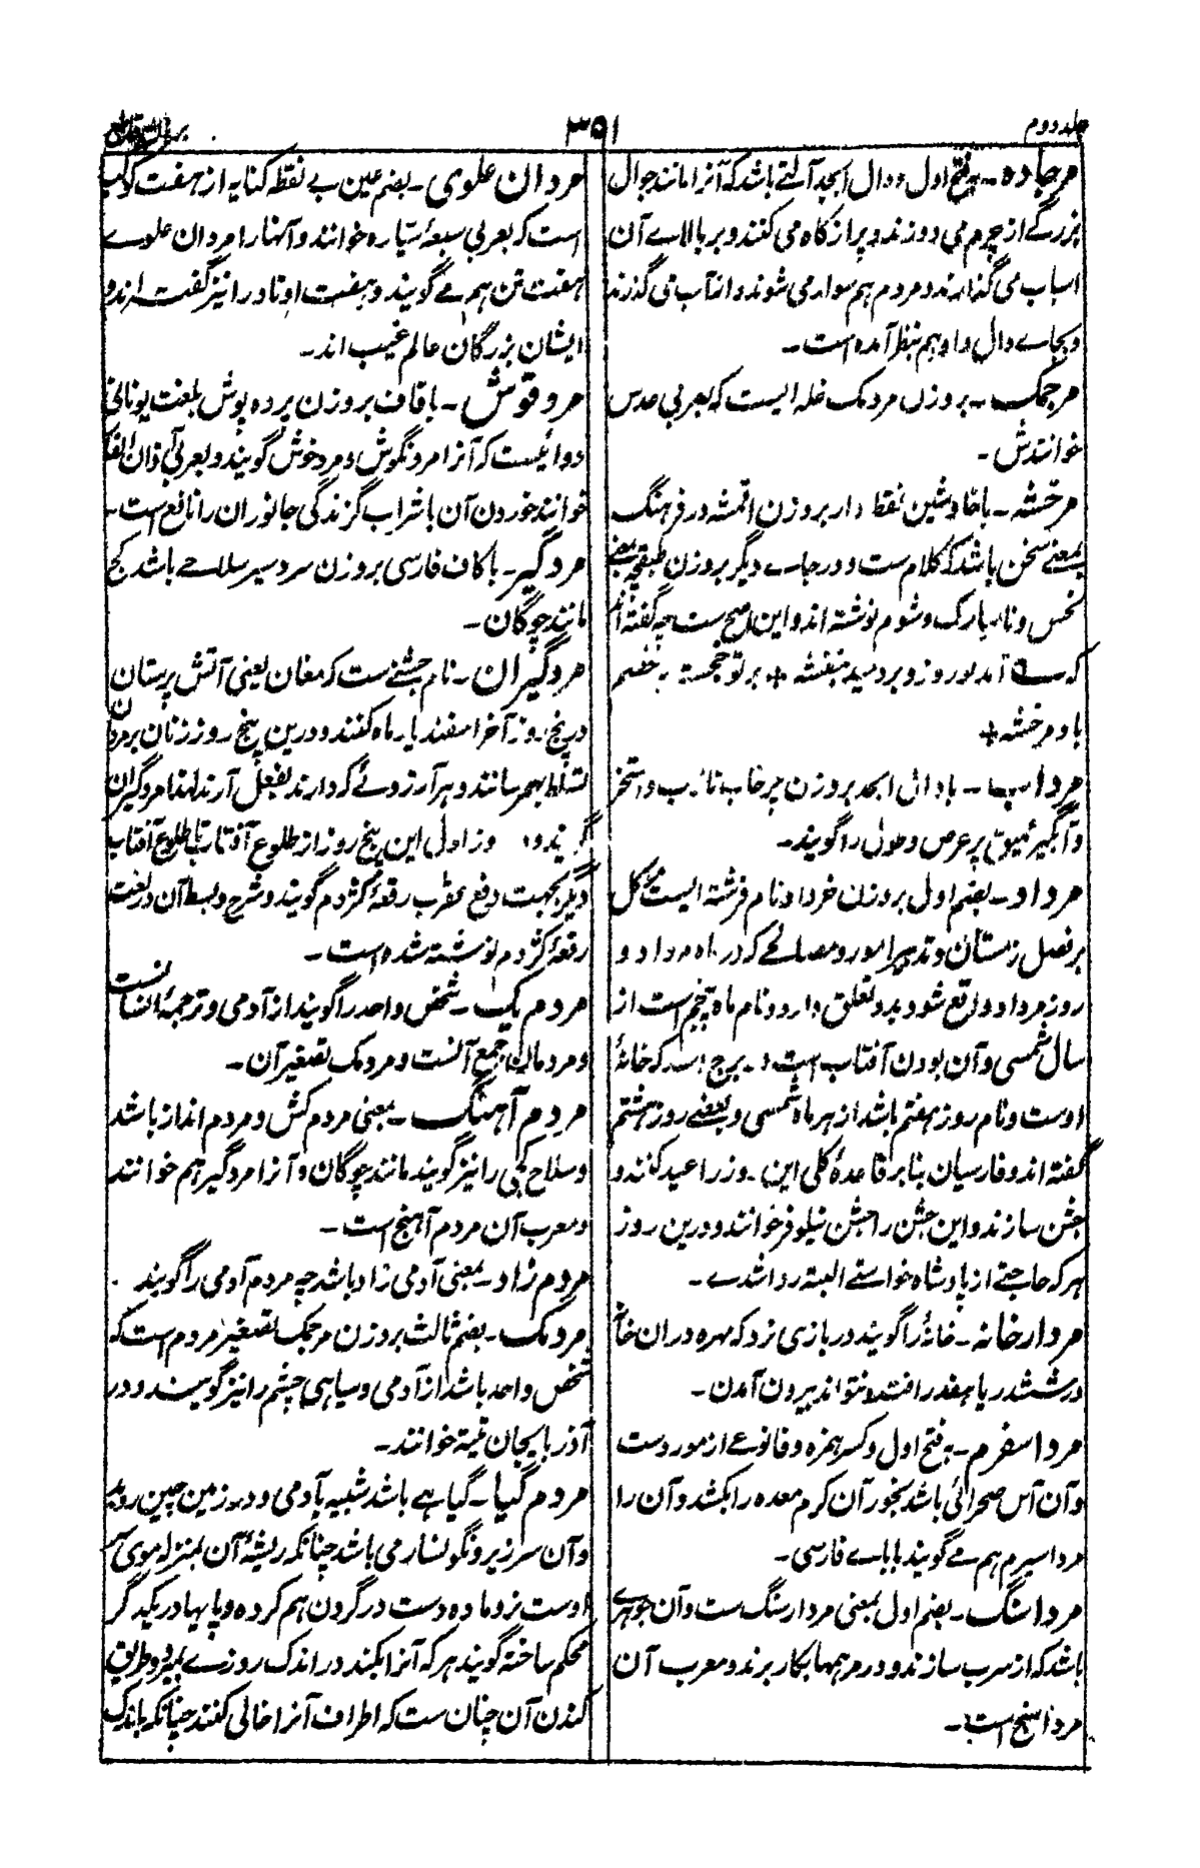 جلد دوم
۳۵۱
برهان قاطع
مرجاده - بفتح اول و دال ابجد آلتے باشد که آنرا مانند جوال
بزرگے از چرم می دوزند و پر از کاه می کنند و بر بالاے آن
اسباب می گذارند و مردم هم سوار می شوند و از آب می گذرند
و بجاے دال واو هم بنظر آمده است -
مرجمک - بروزن مردمک غله ایست که بعربی عدس
خوانندش -
مرخشه - باخا و شین نقطه دار بروزن اقمشه در فرهنگ
بمعنے سخن باشد که کلام ست و در جاے دیگر بروزن طبقچه بمعنے
نحس و نا مبارک و شوم نوشته اند و این اصح ست چه گفته اند
که آمد نوروز و بر دمید بنفشه + بر تو خجسته
باد مرخشه +
مرداب - با دال ابجد بروزن پرخاب تالاب و استخر
و آبگیر عمیق پر عرض و طول را گویند -
مرداد - بضم اول بروزن خرداد نام فرشته ایست موکل
بر فصل زمستان و تدبیر امور و مصالحے که در ماه مرداد و
روز مرداد واقع شود بدو تعلق دارد و نام ماه پنجم است از
سال شمسی و آن بودن آفتاب است در برج اسد که خانهٔ
اوست و نام روز هفتم باشد از هر ماه شمسی و بعضے روز هشتم
گفته اند و فارسیان بنابر قاعدهٔ کلی این روز را عید کنند و
جشن سازند و این جشن را جشن نیلوفر خوانند و درین روز
هر که حاجتے از پادشاه خواستے البته روا شدے -
مردار خانه - خانهٔ را گویند در بازی نرد که مهره در ان خانه
در ششدر یا هفدر افتد و نتواند بیرون آمدن -
مردا سفرم - بفتح اول و کسر همزه و فا نوعے از مورد ست
و آن آس صحرائی باشد بخور آن کرم معده را بکشد و آن را
مردا سپرم هم مے گویند با باے فارسی -
مردا سنگ - بضم اول بمعنی مردار سنگ ست و آن جوهرے
باشد که از سرب سازند و در مرهمها بکار برند و معرب آن
مرداسنج است -
مردان علوی - بضم عین بے نقطه کنایه از هفت کوکب
است که بعربی سبعهٔ سیاره خوانند و آنها را مردان علوے
هفت تن هم مے گویند و هفت اوتاد را نیز گفته اند و
ایشان بزرگان عالم غیب اند -
مردقوش - باقاف بروزن پرده پوش بلغت یونانی
دوائیست که آنرا مرزنگوش و مردخوش گویند و بعربی آذان الفار
خوانند خوردن آن با شراب گزندگی جانوران را نافع است -
مردگیر - با کاف فارسی بروزن سردسیر سلاحے باشد کج
مانند چوگان -
مردگیران - نام جشنے ست که مغان یعنی آتش پرستان
در پنج روز آخر اسفندیار ماه کنند و درین پنج روز زنان بر مردان
تسلط بهمرسانند و هر آرزوئے که دارند بفعل آرند لهذا مردگیران
گویند و روز اول این پنج روز از طلوع آفتاب تا طلوع آفتاب
دیگر بجهت دفع عقرب رقعهٔ کژدم گویند و شرح و بسط آن در لغت
رقعهٔ کژدم نوشته شده است -
مردم یک - شخص واحد را گویند از آدمی و ترجمهٔ انسانست
و مردمان جمع آنست و مردمک تصغیر آن -
مردم آهنگ - بمعنی مردم کش و مردم انداز باشد
و سلاح کجی را نیز گویند مانند چوگان و آنرا مردگیر هم خوانند
و معرب آن مردم آهنج است -
مردم زاد - بمعنی آدمی زاد باشد چه مردم آدمی را گویند
مردمک - بضم ثالث بروزن مرجمک تصغیر مردم است که
شخص واحد باشد از آدمی و سیاهی چشم را نیز گویند و در
آذربایجان خوانند -
مردم گیا - گیاهے باشد شبیه بآدمی و در زمین چین روید
و آن سرزیر و نگونسار می باشد چنانکه ریشهٔ آن بمنزله موی سر
اوست نر و ماده دست در گردن هم کرده و پاها در یکدیگر
محکم ساخته گویند هر که آنرا بکند در اندک روزے بمیرد و طریق
کندن آن چنان ست که اطراف آنرا خالی کنند چنانکه باندک